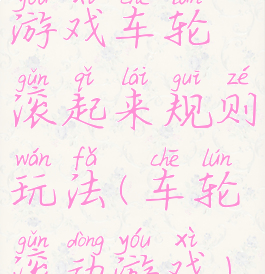 yóu xì chē lún
游戏车轮
gǔn qǐ lái guī zé
滚起来规则
wán fǎ chē lún
玩法(车轮
gǔn dòng yóu xì
滚动游戏)